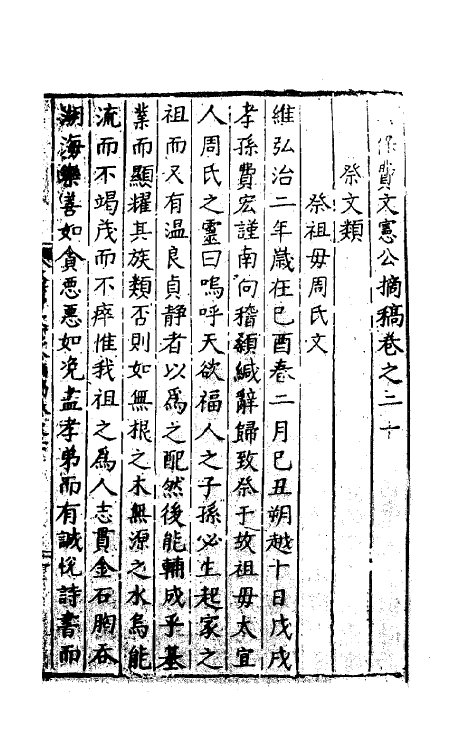 保費文憲公摘稿卷之二十
祭文類
祭祖母周氏文
維弘治二年歲在己酉春二月己丑朔越十日戊戌
孝孫費宏謹南向稽顙緘辭歸致祭于故祖母太宜
人周氏之靈曰嗚呼天欲福人之子孫必生起家之
祖而又有温良貞静者以爲之配然後能輔成乎基
業而顯耀其族類否則如無根之木無源之水烏能
流而不竭茂而不瘁惟我祖之爲人志貫金石胸吞
湖海樂善如貪惡惡如浼盡孝弟而有誠悦詩書而